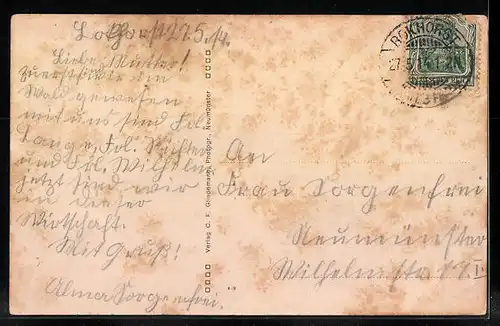 27.5.14.
Liebe Mutter!
Zuerst sind wir im
Wald gewesen
mit uns sind Frl.
Lange, Frl. Richter
und Frl. Wilhelm
jetzt sind wir
in dieser
Wirtschaft.
Mit Gruß!
Alma Sorgenfrei.
Verlag C. F. Glindemann, Photogr., Neumünster
An
Frau Sorgenfrei
Neumünster
Wilhelmstr.
BOKHORST
27.5.14.1-2N